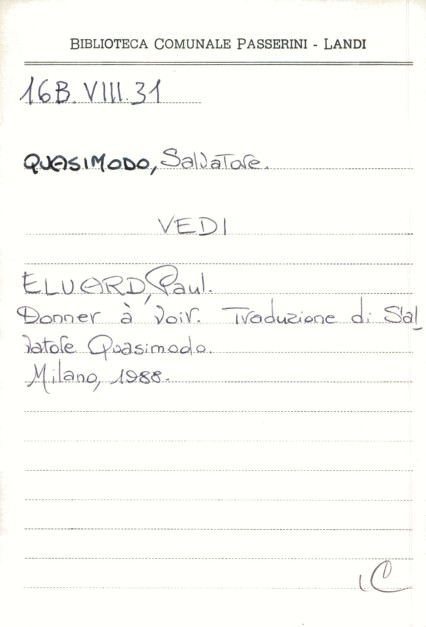 BIBLIOTECA COMUNALE PASSERINI - LANDI
16B. VIII.31
QUASIMODO, Salvatore.
VEDI
ELUARD, Paul.
Donner à Voir. Traduzione di Sal
vatore Quasimodo.
Milano, 1988.